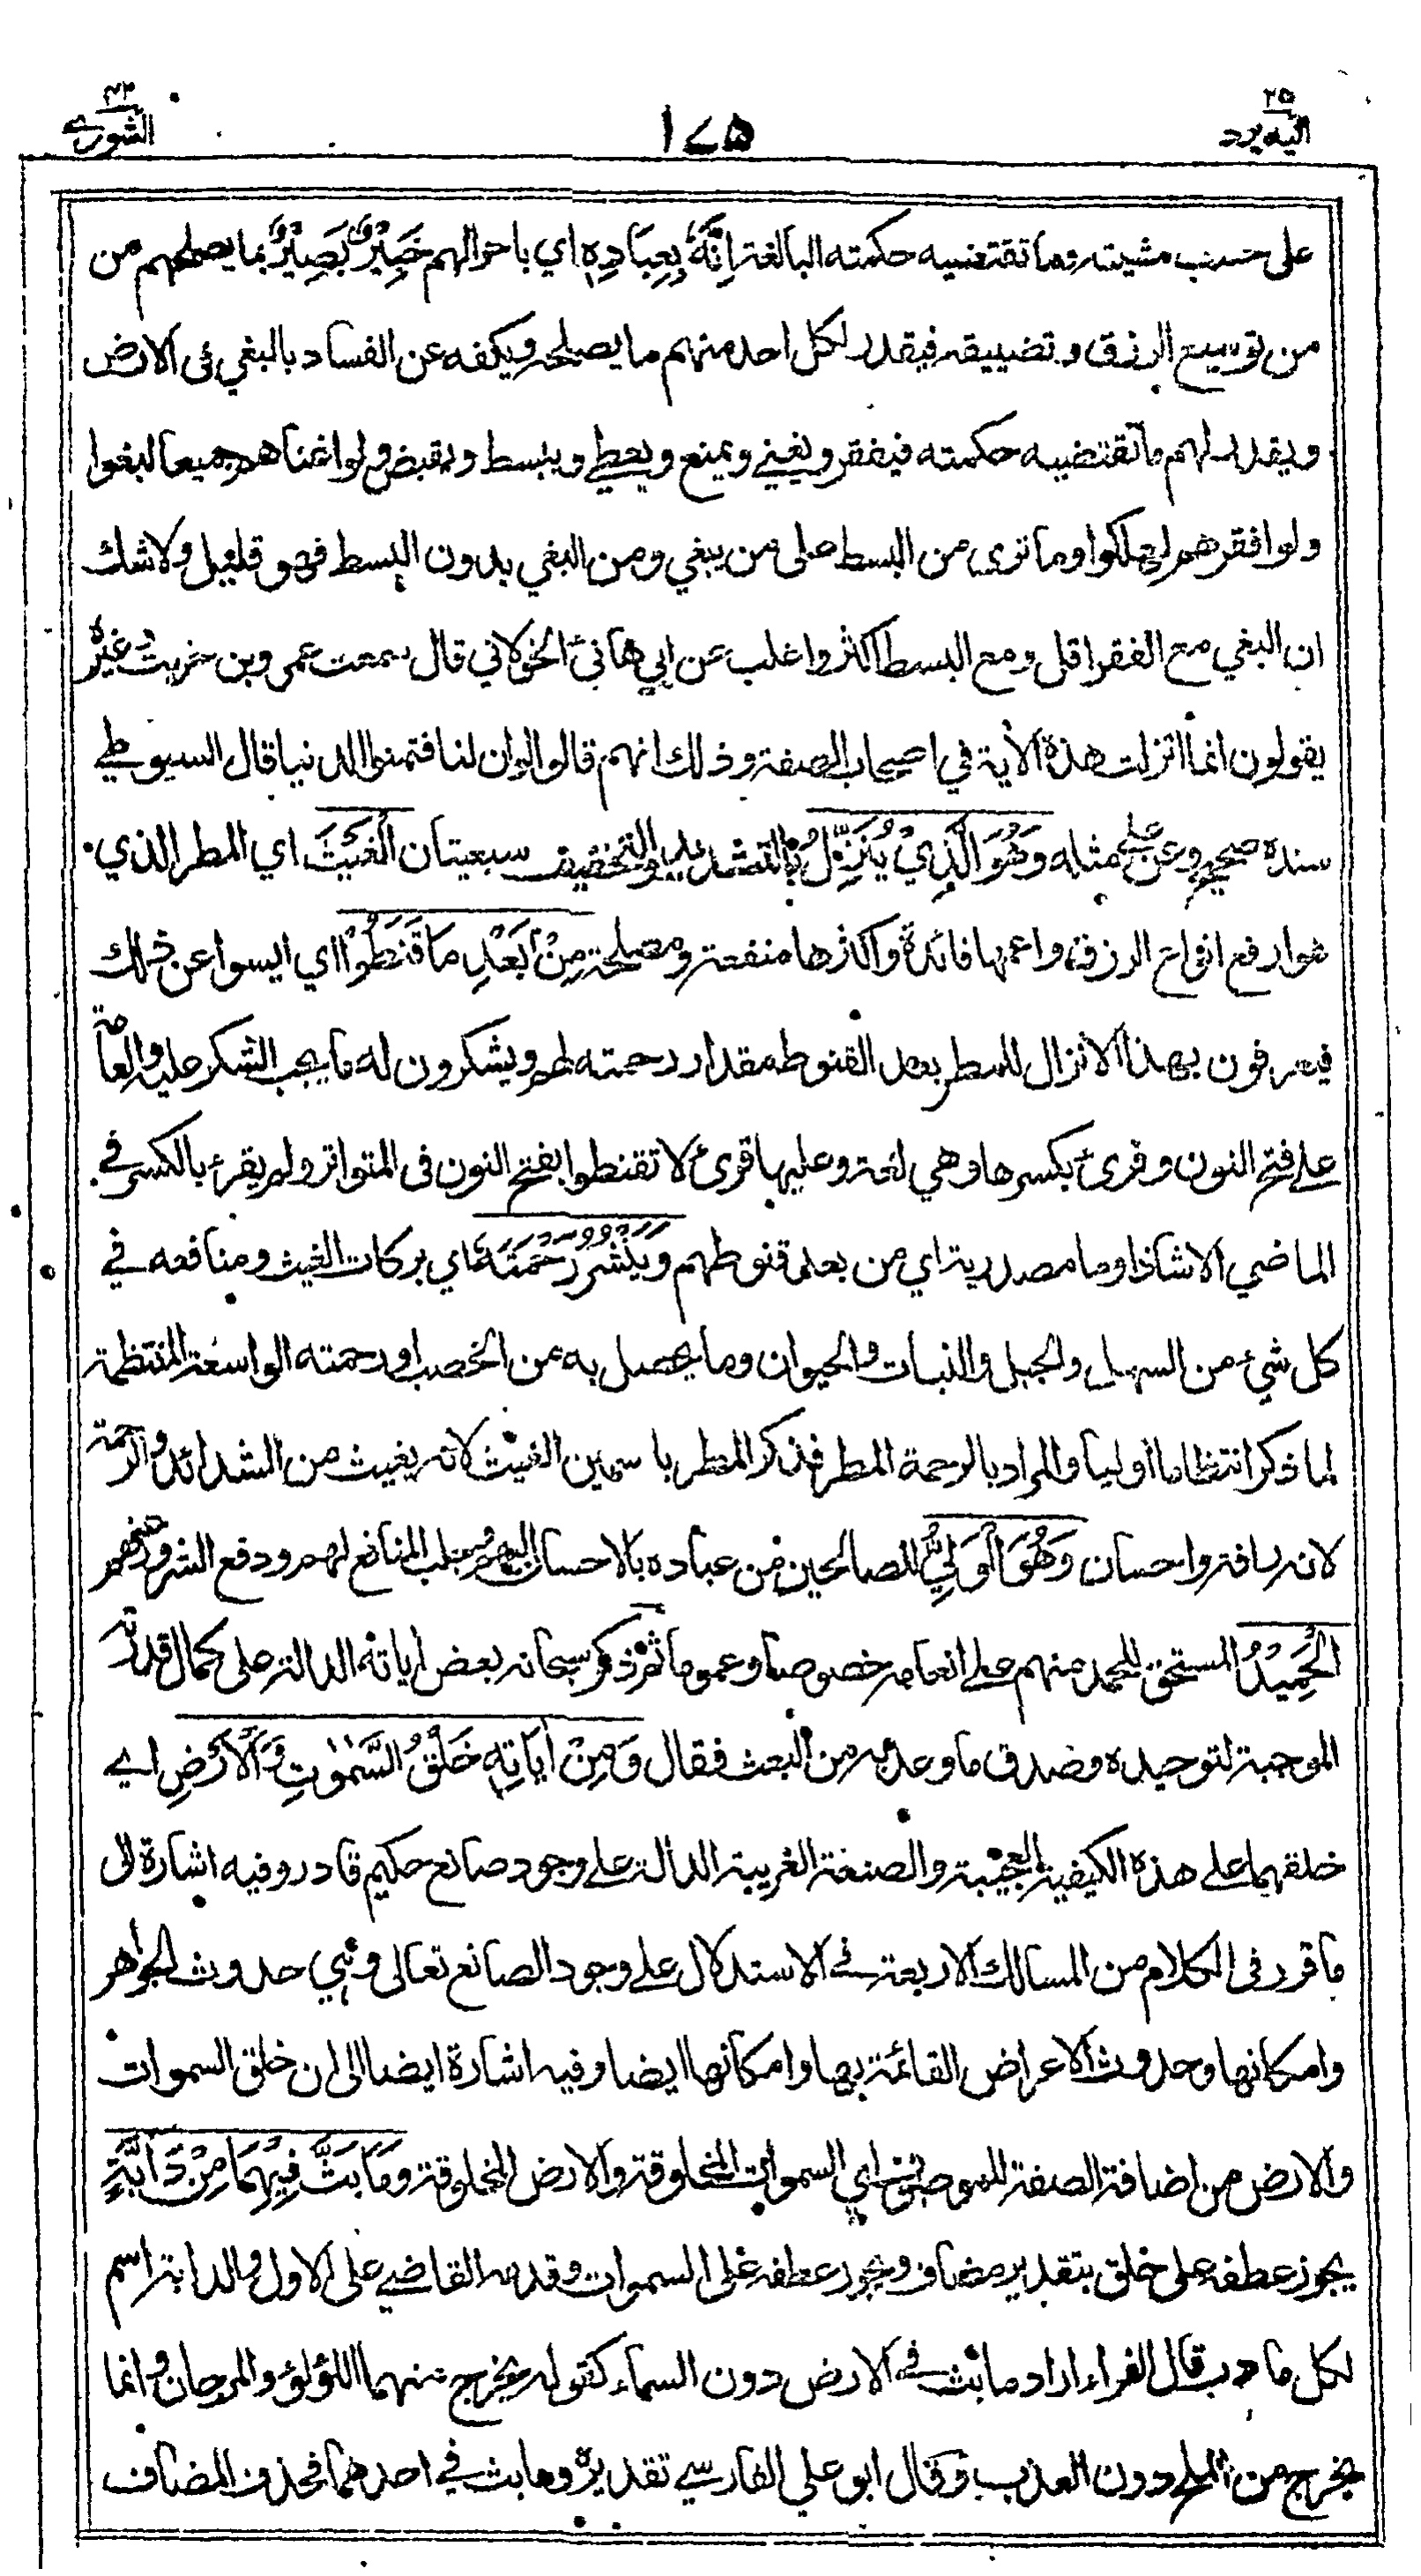 ٢٥
اليه يرد
١٧٥
٤٢
الشورى
على حسب مشيته وما تقتضيه حكمته البالغة اِنَّهٗ بِعِبَادِهٖ اي باحوالهم خَبِيْرٌۢ بَصِيْرٌ بما يصلحهم من
من توسيع الرزق وتضييقه فيقدر لكل احد منهم ما يصلحه ويكفه عن الفساد بالبغي فى الارض
ويقدر لهم ما تقتضيه حكمته فيفقر ويغني ويمنع ويعطي ويبسط ويقبض ولو اغناهم جميعا لبغوا
ولو افقرهم لهلكوا وما ترى من البسط على من يبغي ومن البغي بدون البسط فهو قليل ولا شك
ان البغي مع الفقر اقل ومع البسط اكثر واغلب عن ابي هانئ الخولاني قال سمعت عمرو بن حريث وغيره
يقولون انما انزلت هذه الأية في اصحاب الصفة وذلك انهم قالوا لو ان لنا فتمنوا الدنيا قال السيوطي
سنده صحيح وعن علي مثله وَهُوَ الَّذِيْ يُنَزِّلُ بالتشديد والتخفيف سبعيتان الْغَيْثَ اي المطر الذي
هو ارفع انواع الرزق واعمها فائدة واكثرها منفعة ومصلحة مِنْۢ بَعْدِ مَا قَنَطُوْا اي ايسوا عن ذلك
فيعرفون بهذا الانزال للمطر بعد القنوط مقدار رحمته لهم ويشكرون له ما يجب الشكر عليه والعامة
على فتح النون وقرئ بكسرها وهي لغة وعليها قرئ لا تقنطوا بفتح النون فى المتواتر ولم يقرء بالكسر في
الماضي الا شاذا وما مصدرية اي من بعد قنوطهم وَيَنْشُرُ رَحْمَتَهٗ اي بركات الغيث ومنافعه في
كل شيء من السهل والجبل والنبات والحيوان وما يحصل به من الخصب او رحمته الواسعة المنتظمة
لما ذكر انتظاما اوليا والمراد بالرحمة المطر فذكر المطر باسمين الغيث لانه يغيث من الشدائد والرحمة
لانه رافة واحسان وَهُوَ الْوَلِيُّ للصالحين من عباده بالاحسان اليهم وجلب المنافع لهم ودفع الشرور عنهم
الْحَمِيْدُ المستحق للحمد منهم على انعامه خصوصا وعموما ثم ذكر سبحانه بعض اياته الدالة على كمال قدرته
الموجبة لتوحيده وصدق ما وعد به من البعث فقال وَمِنْ اٰيَاتِهٖ خَلْقُ السَّمٰوٰتِ وَالْاَرْضِ اي
خلقهما على هذه الكيفية العجيبة والصنعة الغريبة الدالة على وجود صانع حكيم قادر وفيه اشارة الى
ما قرر فى الكلام من المسالك الاربعة في الاستدلال على وجود الصانع تعالى وهي حدوث الجواهر
وامكانها وحدوث الاعراض القائمة بها وامكانها ايضا وفيه اشارة ايضا الى ان خلق السموات
والارض من اضافة الصفة للموصوف اي السموات المخلوقة والارض المخلوقة وَمَا بَثَّ فِيْهِمَا مِنْ دَابَّةٍ
يجوز عطفه على خلق بتقدير مضاف ويجوز عطفه على السموات وقدمه القاضي على الاول والدابة اسم
لكل ما دب قال الفراء اراد ما بث في الارض دون السماء كقوله يخرج منهما اللؤلؤ والمرجان وانما
يخرج من الملح دون العذب وقال ابو علي الفارسي تقديره وما بث في احدهما فحذف المضاف